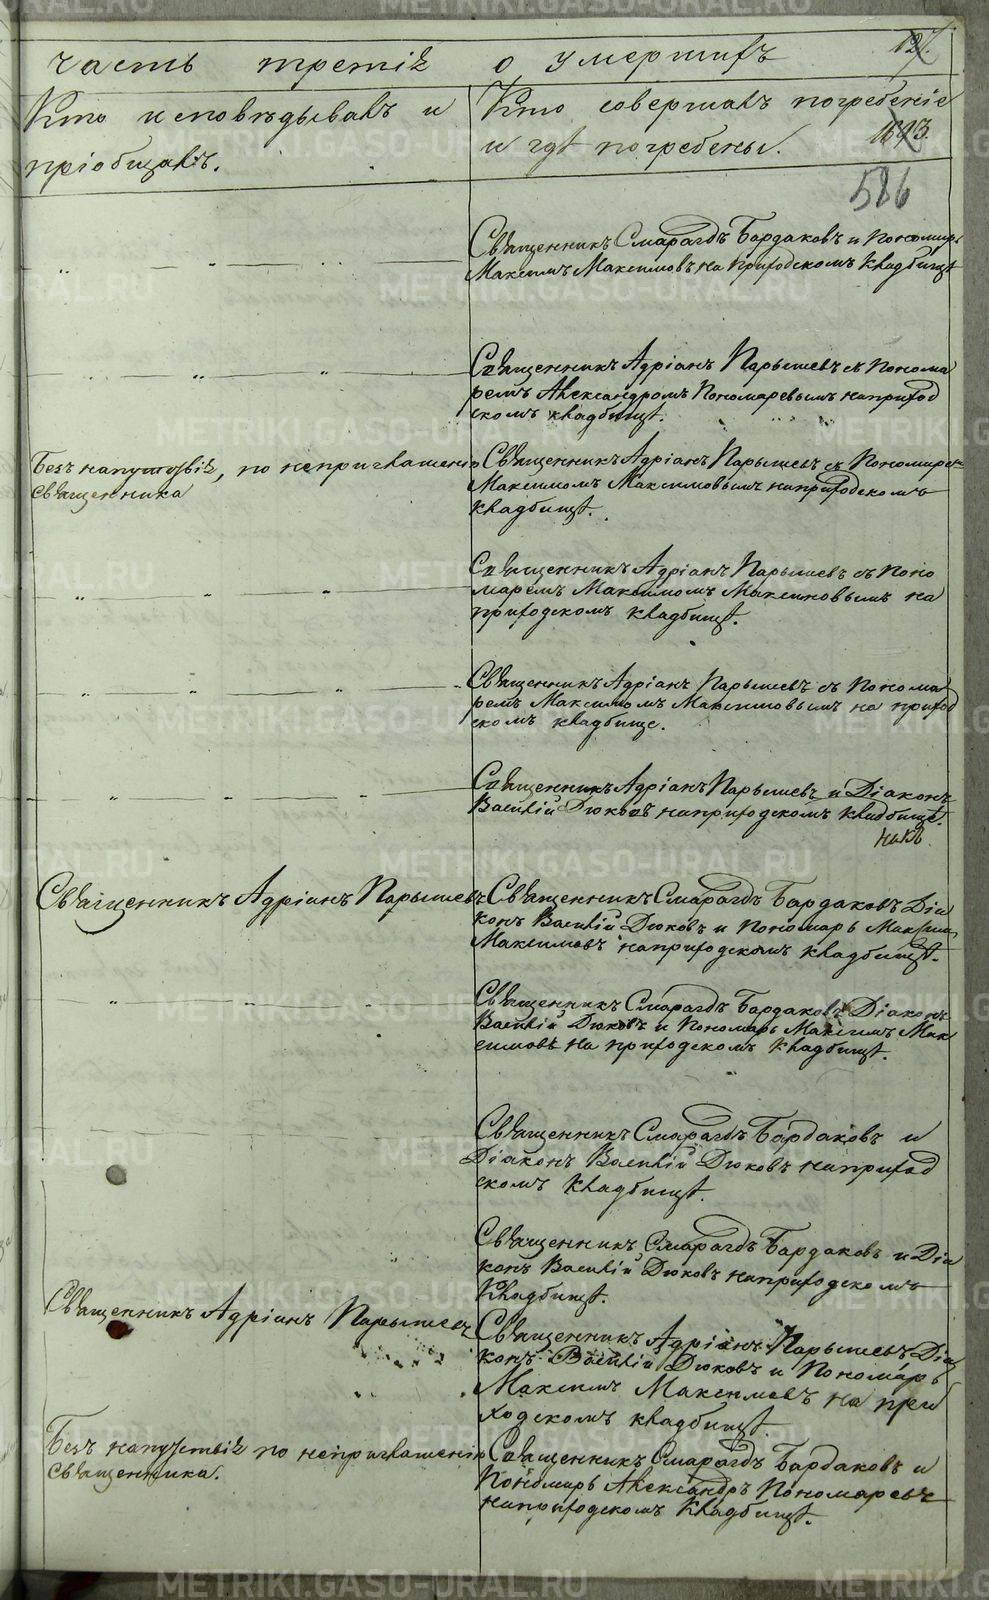 часть третія о умершихъ
127.
Кто исповѣдывалъ и
пріобщалъ.
Кто совершалъ погребеніе
и гдѣ погребены.
1613.
586
Священникъ Смарагдъ Бардаковъ и Пономарь
Максимъ Максимовъ на приходскомъ кладбищѣ
Священникъ Адріанъ Парышевъ съ Понома
ремъ Александромъ Пономаревымъ на приход
скомъ кладбищѣ.
Безъ напутствія, по неприглашенію
священника
Священникъ Адріанъ Парышевъ съ Пономарем
Максимомъ Максимовымъ на приходскомъ
кладбищѣ.
Священникъ Адріанъ Парышевъ съ Поно
маремъ Максимомъ Максимовымъ на
приходскомъ кладбищѣ.
Священникъ Адріанъ Парышевъ съ Понома
ремъ Максимомъ Максимовымъ на приход
скомъ кладбище.
Священникъ Адріанъ Парышевъ и Діаконъ
Василій Дюковъ на приходскомъ кладбище.
Священникъ Адріанъ Парышевъ
Священникъ Смарагдъ Бардаковъ Діа
конъ Василій Дюковъ и Пономарь Максимъ
Максимовъ на приходскомъ кладбищѣ.
Священникъ Смарагдъ Бардаковъ Діаконъ
Василій Дюковъ и Пономарь Максимъ Мак
симовъ на приходскомъ кладбищѣ.
Священникъ Смарагдъ Бардаковъ и
Діаконъ Василій Дюковъ на приход
скомъ кладбищѣ.
Священникъ Смарагдъ Бардаковъ и Діа
конъ Василій Дюковъ на приходскомъ
кладбищѣ.
Священникъ Адріанъ Парышевъ
Священникъ Адріанъ Парышевъ Діа
конъ Василій Дюковъ и Пономарь
Максимъ Максимовъ на при
ходскомъ кладбищѣ.
Безъ напутствія по неприглашенію
священника.
Священникъ Смарагдъ Бардаковъ и
Пономарь Александръ Пономаревъ
на приходскомъ кладбищѣ.
METRIKI.GASO-URAL.RU